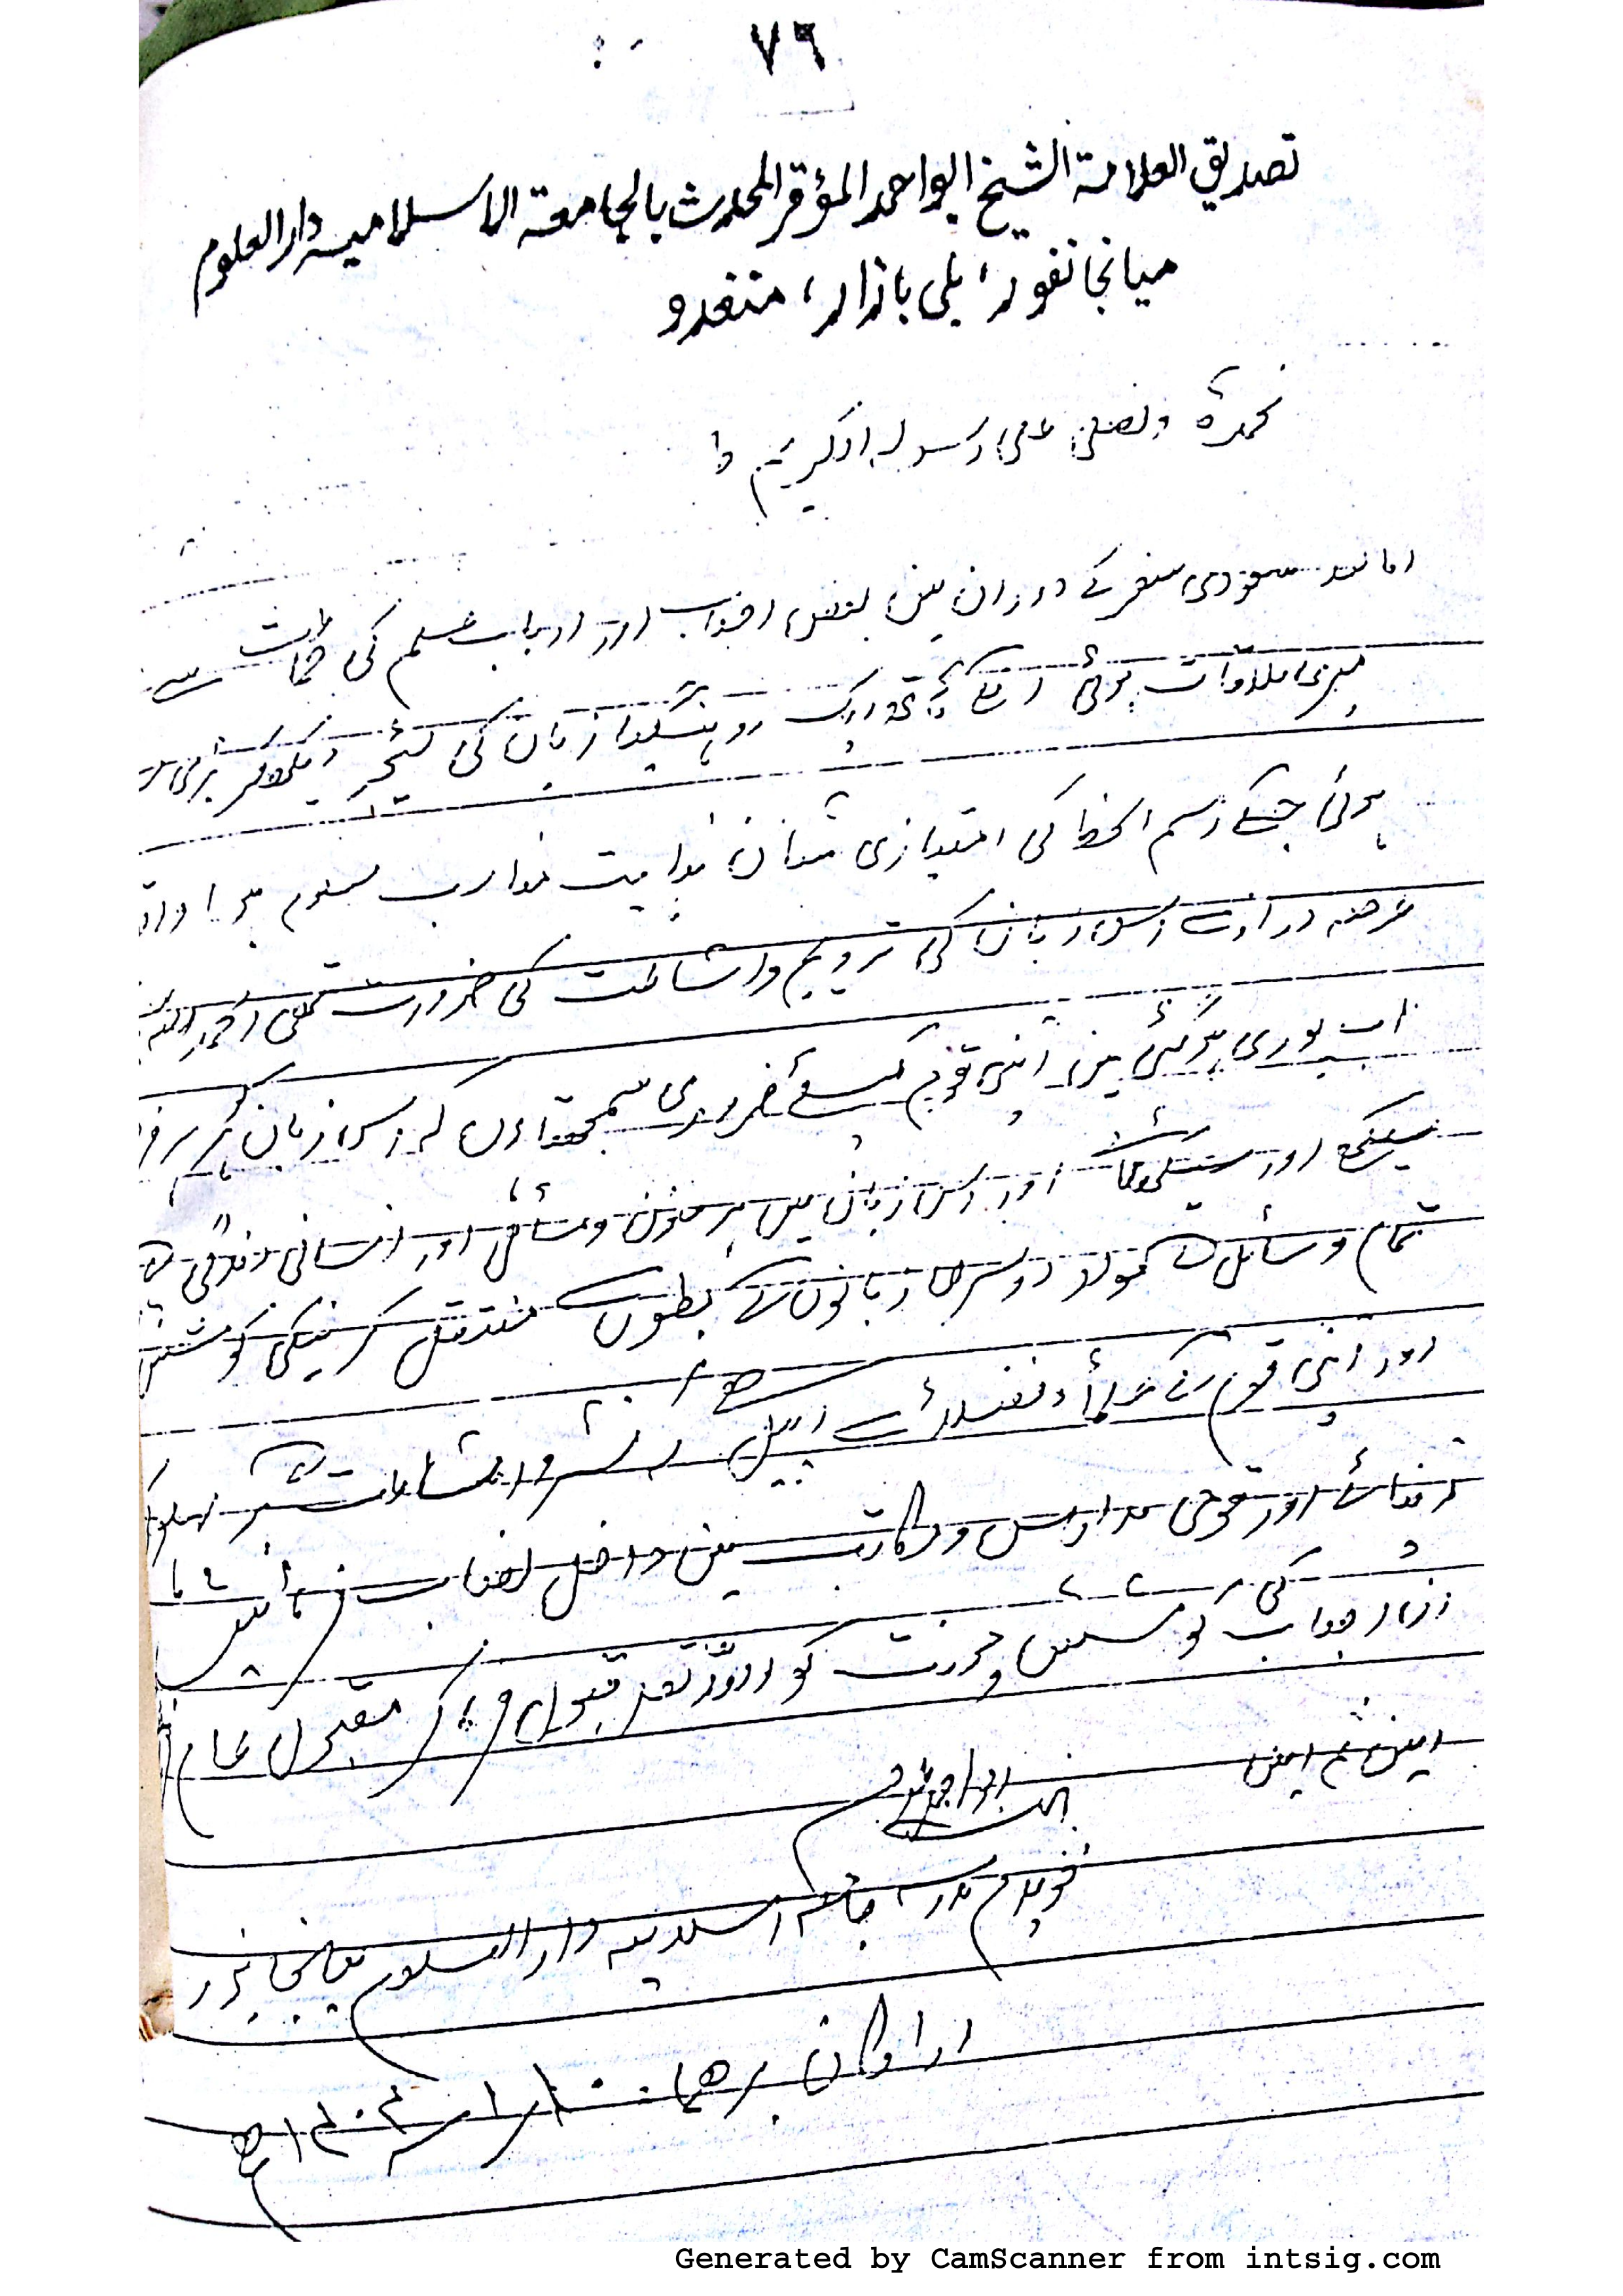 ٧٦
تصديق العلامة الشيخ ابو احمد المؤقر المحدث بالجامعة الاسلاميه دار العلوم
ميانجانفور، بلى بازار، منغدو
نحمدہ ونصلی علی رسولہ الکریم
اما بعد سعودی سفر کے دوران میں بعض احباب اور ارباب علم کی جماعت سے
میری ملاقات ہوئی روہنگیا زبان کی دیکھکر بڑی
ہوئی جسکے رسم الخط کی امتیازی شان نہایت معلوم ہوا
عرصہ دراز سے اس زبان کی ترویج واشاعت کی ضرورت تھی الحمد للہ
اب پوری ہوگئی میں اپنی قوم کیلئے ضروری سمجھتا ہوں کہ اس زبان کو ہر فرد
سیکھے اور سکھائے اور اس زبان میں ہر فنون ومسائل اور انسانی زندگی کے
تمام وسائل کو دوسری زبانوں کے بطون سے منتقل کرنیکی کوشش
اور اپنی قوم کے علماء وفضلاء سے اپیل ہے کہ نشر واشاعت
فرمائے اور قومی مدارس ومکاتب میں داخل نصاب فرمائیں
کی کوشش ومحنت کو اللہ تعالی قبول فرما کر مقبول عام
امین ثم امین
ابو احمد
خویدم مدرسہ جامعہ اسلامیہ دار العلوم میانجانپور
اراکان برهما
Generated by CamScanner from intsig.com